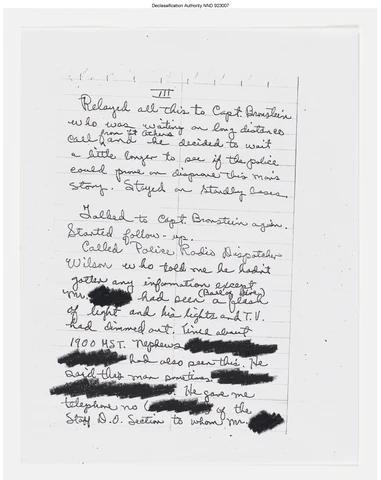 Declassification Authority NND 923007
III
Relayed all this to Capt. Bronstein
who was waiting on long distance
from Ft. Others
call and he decided to wait
a little longer to see if the police
could prove or disprove this man's
story. Stayed on standby basis.
Talked to Capt. Bronstein again.
Started follow-up.
Called Police Radio Dispatcher
Wilson who told me he hadn't
gotten any information except
Mr. had seen a flash
of light and his lights and T.V.
had dimmed out. Time about
1900 MST. Nephews
had also seen this. He
said this man sometimes
He gave me
telephone no ( of the
Staff D.O. Section to whom Mr.